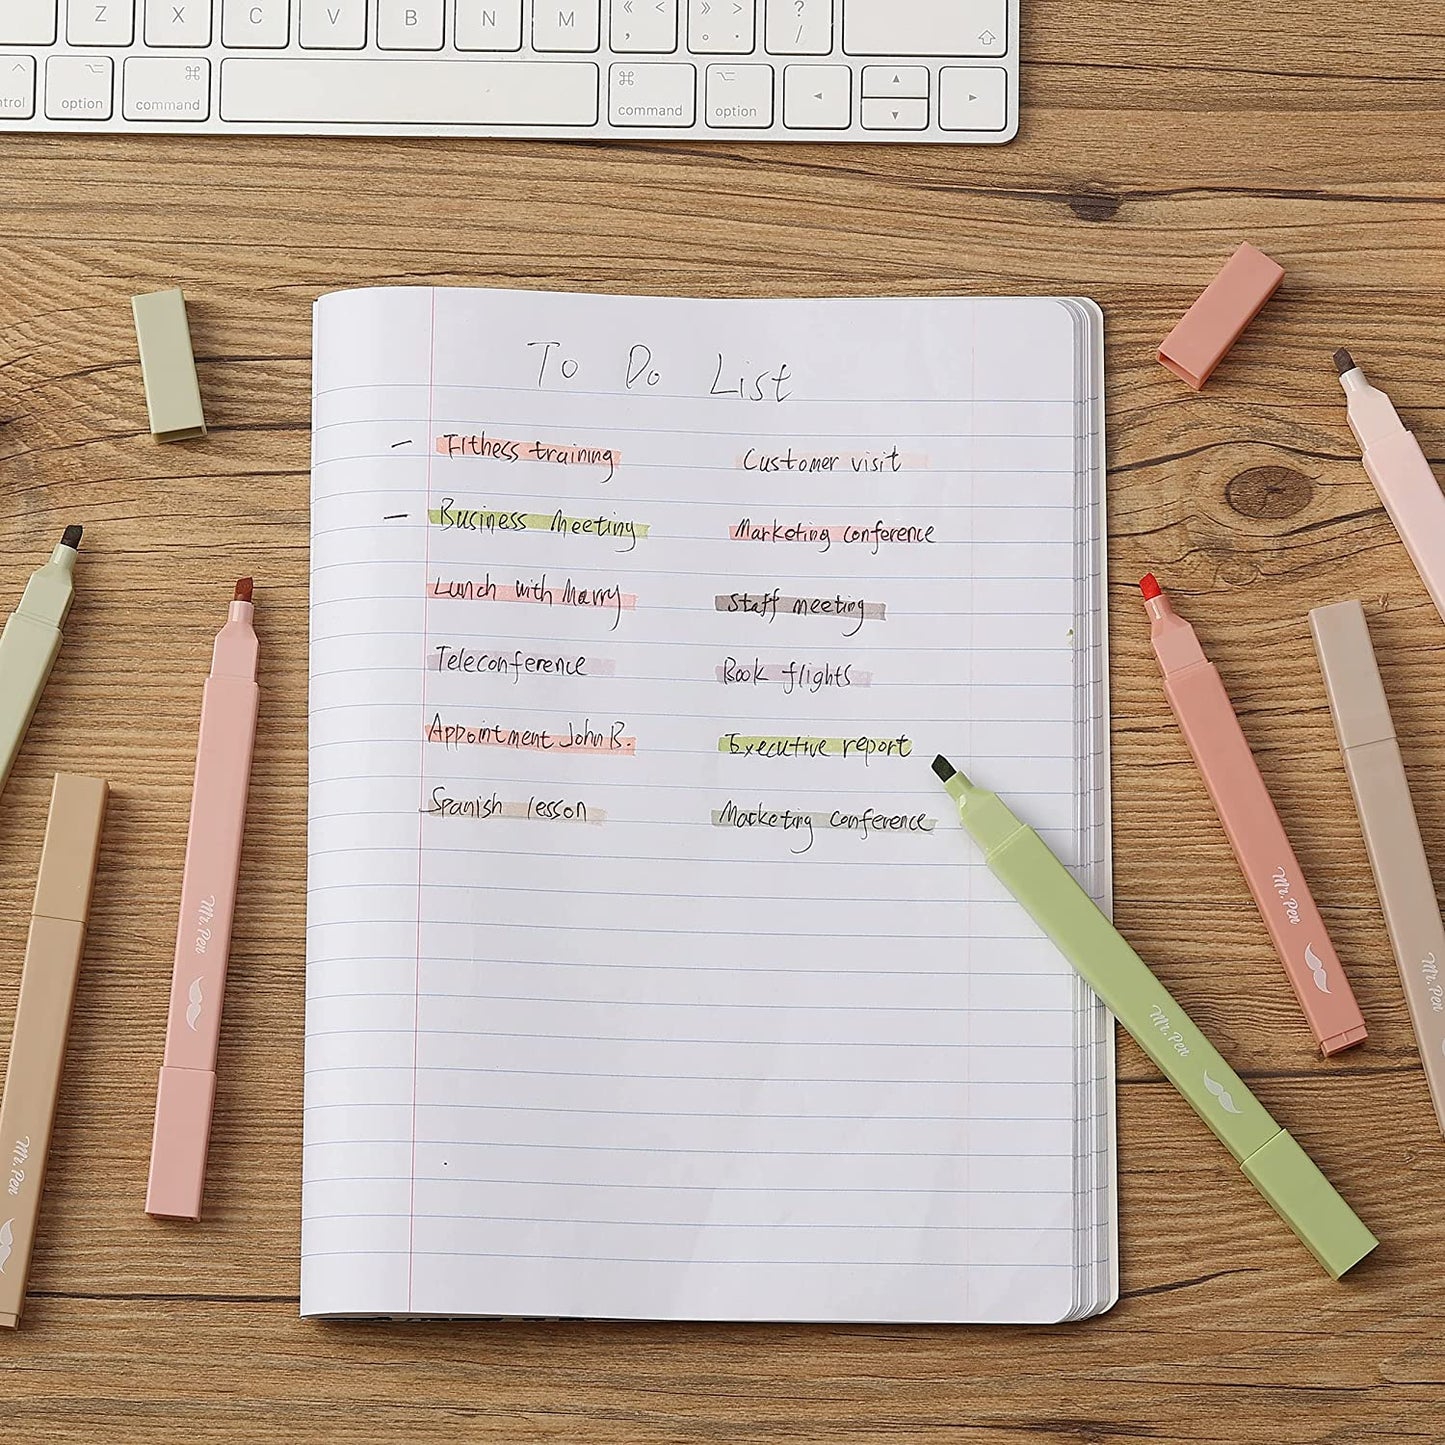 Z X C V B N M « < , » > 。 . ? /
ntrol option command command option
To Do List
– Fithess training
Customer visit
– Business Meeting
Marketing conference
Lunch with Marry
Staff meeting
Teleconference
Book flights
Appointment John B.
Executive report
Spanish lesson
Marketing conference
Mr. Pen
Mr. Pen
Mr. Pen
Mr. Pen
Mr. Pen